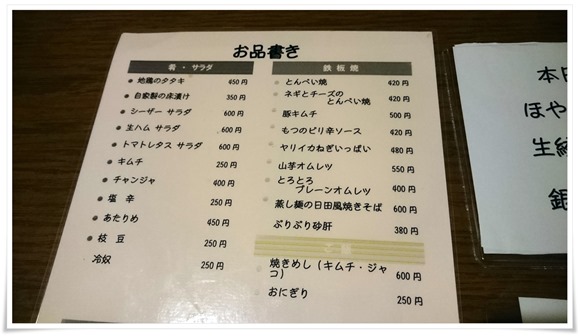 お品書き
肴・サラダ
地鶏のタタキ 450円
自家製の床漬け 350円
シーザー サラダ 600円
生ハム サラダ 600円
トマトレタス サラダ 600円
キムチ 250円
チャンジャ 400円
塩辛 250円
あたりめ 450円
枝豆 250円
冷奴 250円
鉄板焼
とんぺい焼 420円
ネギとチーズの
とんぺい焼 420円
豚キムチ 500円
もつのピリ辛ソース 420円
ヤリイカねぎいっぱい 480円
山芋オムレツ 550円
とろとろ
プレーンオムレツ 400円
蒸し麺の日田風焼きそば 600円
ぷりぷり砂肝 380円
ご飯
焼きめし（キムチ・ジャ
コ） 600円
おにぎり 250円
本日
ほや
生
銀